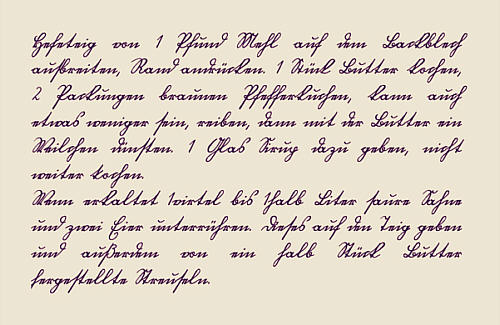 Hefeteig von 1 Pfund Mehl auf dem Backblech
außbreiten, Rand andrücken. 1 Stück Butter kochen,
2 Packungen braunen Pfefferkuchen, kann auch
etwas weniger sein, reiben, dann mit der Butter ein
Weilchen dünsten. 1 Glas Sirup dazu geben, nicht
weiter kochen.
Wenn erkaltet 1virtel bis 1halb Liter saure Sahne
und zwei Eier unterrühren. Dieses auf den Teig geben
und außerdem von ein halb Stück Butter
hergestellte Streuseln.